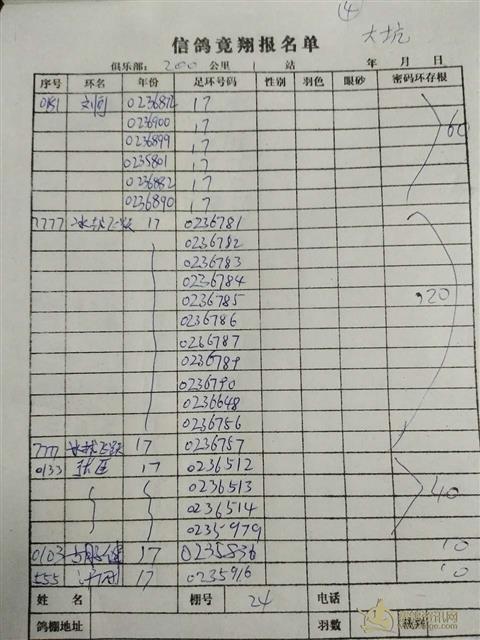 ④
信鸽竞翔报名单 大坑
俱乐部： 200 公里 1 站 年 月 日
序号 环名 年份 足环号码 性别 羽色 眼砂 密码环存根
0181 刘何 0236872 17
0236900 17
0236899 17
0235801 17 60
0236882 17
0236890 17
7777 17 0236781
0236782
0236783
0236784
0236785 120
0236786
0236787
0236789
0236790
0236648
0236756
7777 17 0236757
0133 17 0236512
0236513 40
0236514
0235979
0103 17 0235836 10
555 17 0235916 10
姓 名 棚号 24 电话
鸽棚地址 羽数 裁判